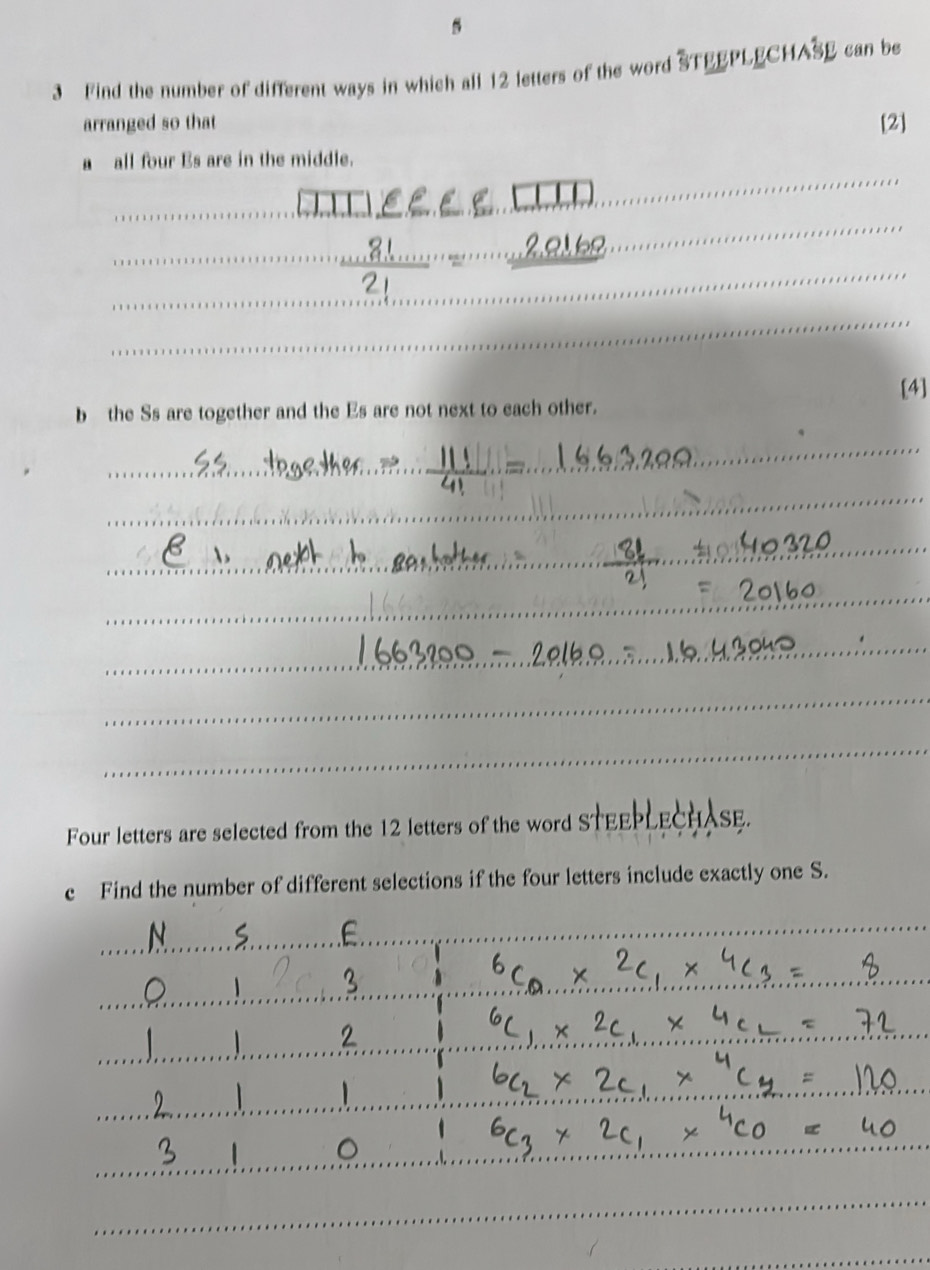 5
3 Find the number of different ways in which all 12 letters of the word STEEPLECHASE can be
arranged so that
[2]
a all four Es are in the middle.
E E E E
8! = 20160
2!
[4]
b the Ss are together and the Es are not next to each other.
SS together ⇒ 11! = 1663200
4!
E is next to eachother = 8! = 40320
2!
= 20160
1663200 - 20160 = 1643040
Four letters are selected from the 12 letters of the word STEEPLECHASE.
c Find the number of different selections if the four letters include exactly one S.
N S E
0 1 3 6C0 × 2C1 × 4C3 = 8
1 1 2 6C1 × 2C1 × 4C2 = 72
2 1 1 6C2 × 2C1 × 4C1 = 120
3 1 0 6C3 × 2C1 × 4C0 = 40